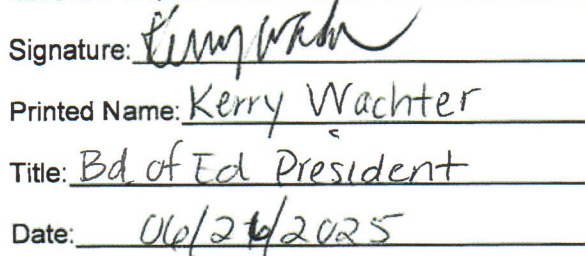 Signature: Kerry Wach
Printed Name: Kerry Wachter
Title: Bd of Ed President
Date: 06/26/2025